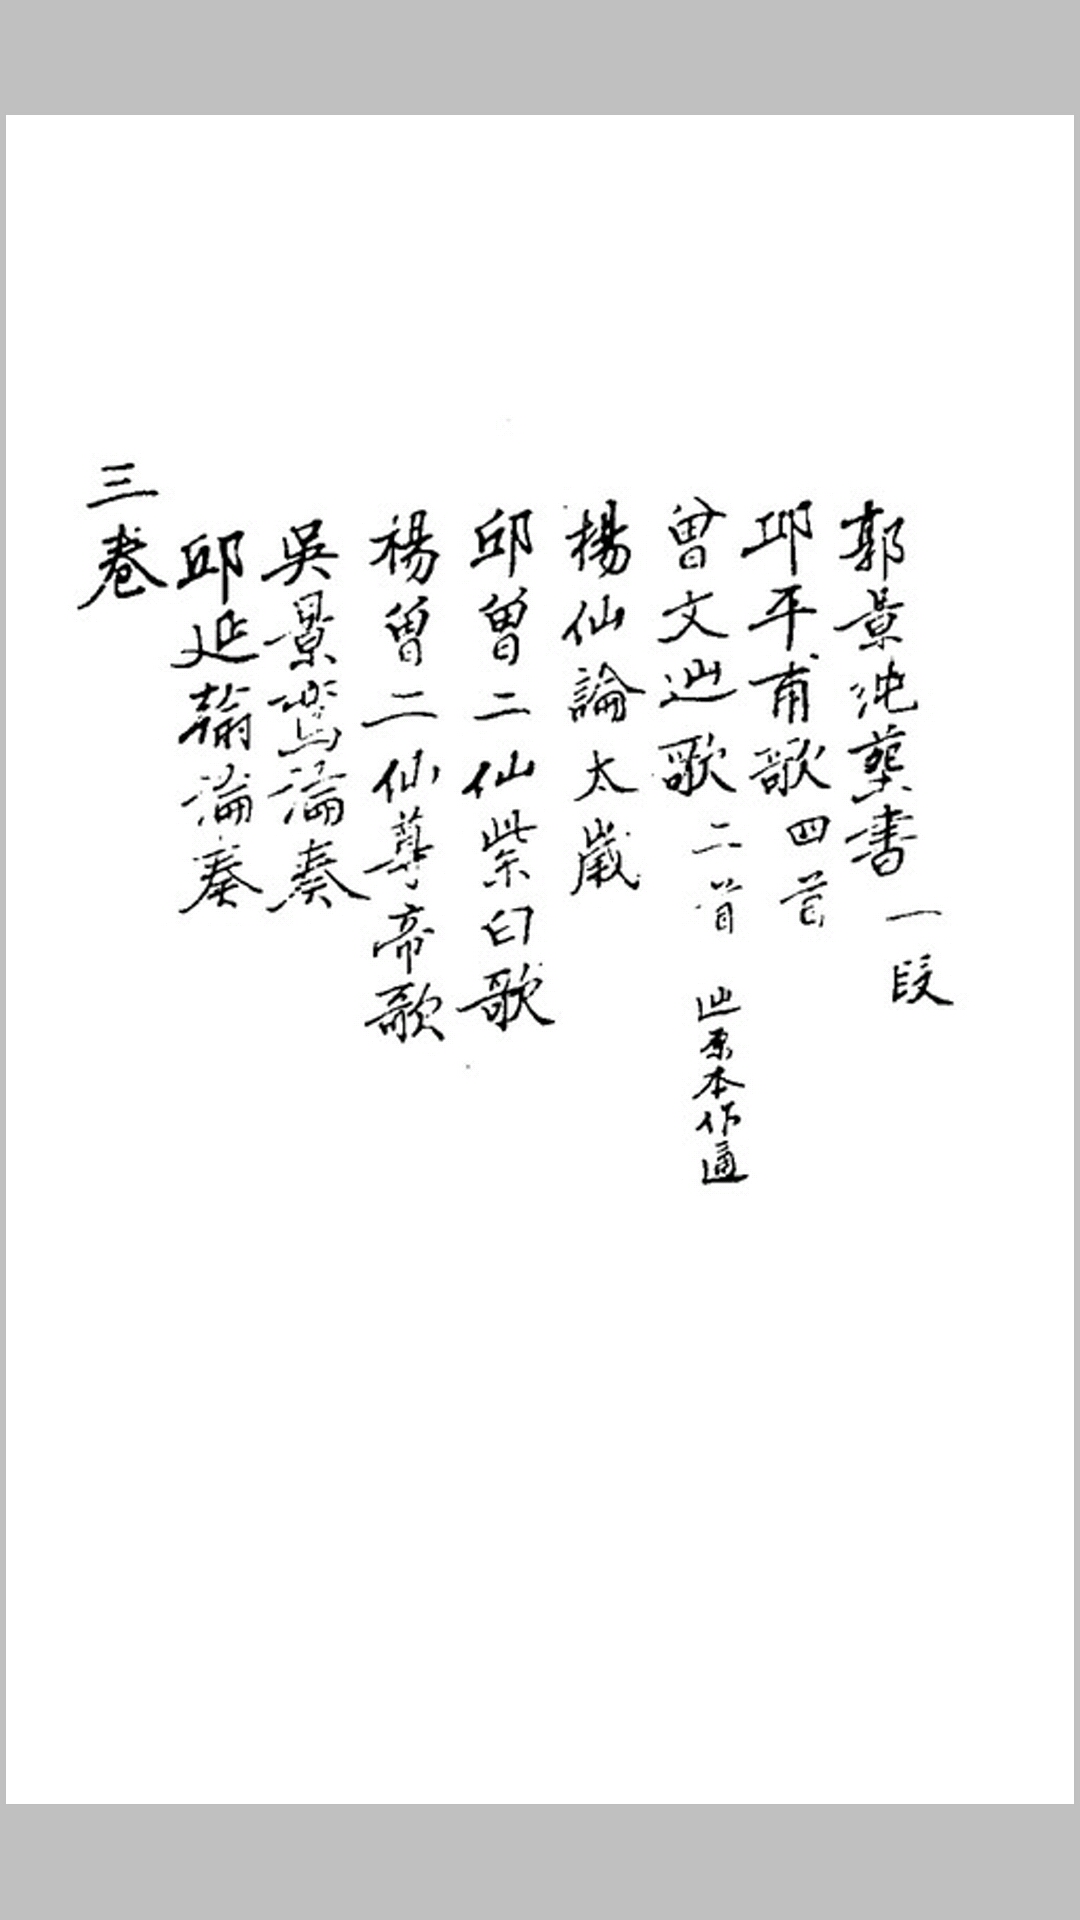 郭景純葬書 一段
邱平甫歌 四首
曾文辿歌 二首 辿原本作遍
楊仙論太嵗
邱曾二仙紫白歌
楊曾二仙尊帝歌
吳景鸞論奏
邱延翰論奏
三卷